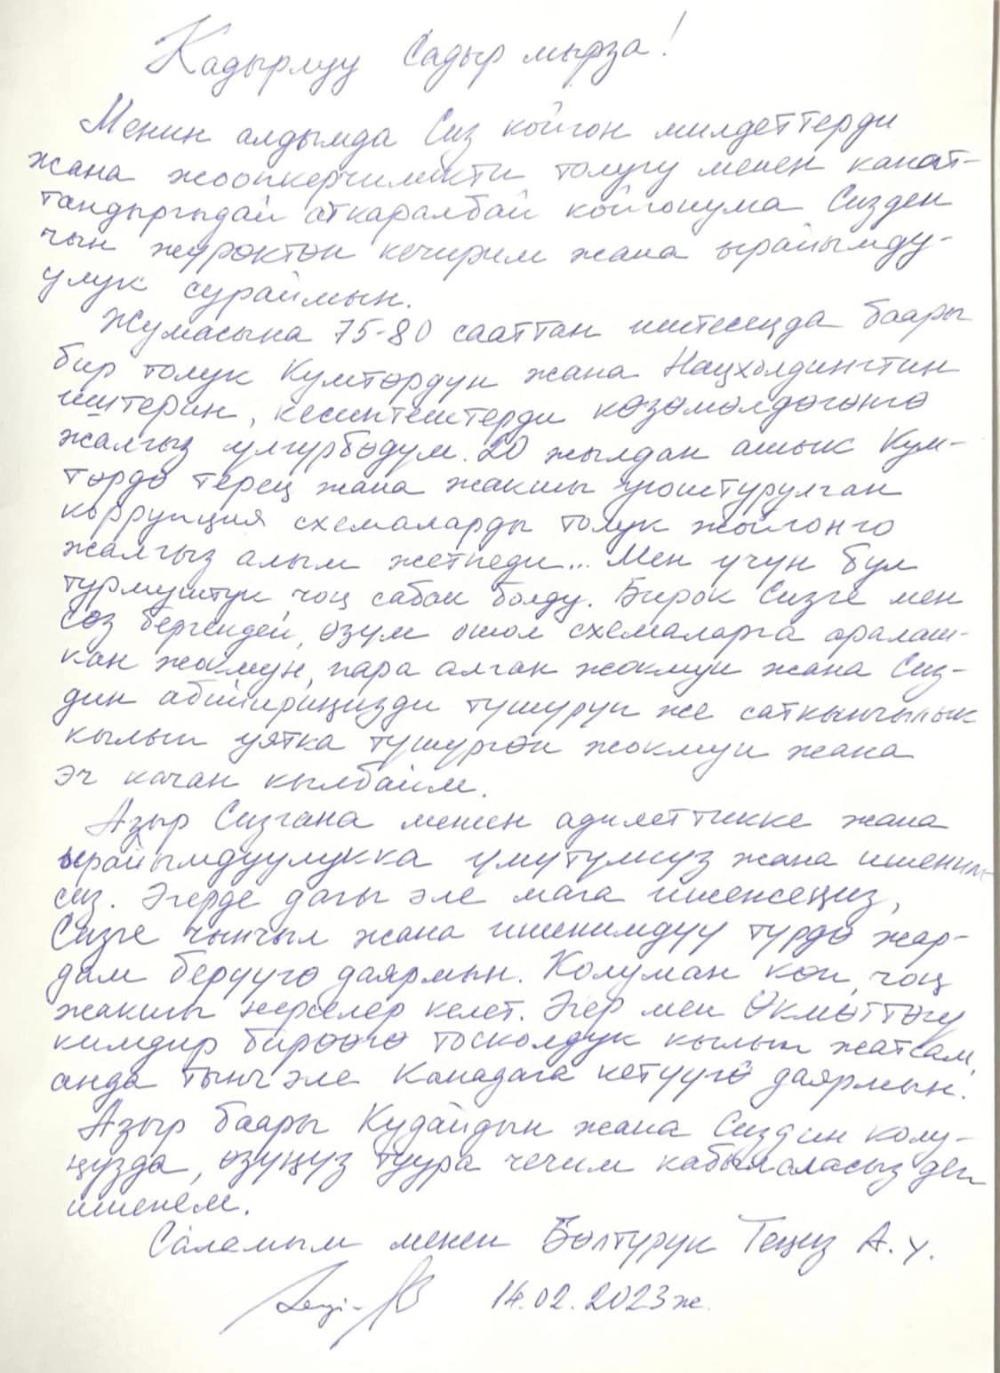 Кадырлуу Садыр мырза!
Менин алдымда Сиз койгон милдеттерди
жана жоопкерчиликти толугу менен канат-
тандыргыдай аткаралбай койгонума Сизден
чын жүрөктөн кечирим жана ырайымду-
улук сураймын.
Жумасына 75-80 сааттан иштесеңда баары
бир толук Кумтөрдүн жана Нацхолдингтин
иштерин, кесиптештерди көзөмөлдөгөнгө
жалгыз үлгүрбөдүм. 20 жылдан ашык Кум-
төрдө терең жана жакшы уюштурулган
коррупция схемаларды толук жойгонго
жалгыз алым жетпеди... Мен үчүн бул
турмуштук чоң сабак болду. Бирок Сизге мен
сөз бергендей, өзүм ошол схемаларга аралаш-
кан жокмун, пара алган жокмун жана Сиз-
дин абийириңизди түшүрүп же саткынчылык
кылып уятка түшүргөн жокмун жана
эч качан кылбайм.
Азыр Сизгана менен адилеттикке жана
ырайымдуулукка үмүтүмүз жана ишеним-
сиз. Эгерде дагы эле мага ишенсеңиз,
Сизге чынчыл жана ишенимдүү түрдө жар-
дам берүүгө даярмын. Колуман көп, чоң
жакшы нерселер келет. Эгер мен Өкмөттөгү
кимдир бирөөгө тоскоолдук кылып жатсам,
анда тынч эле Канадага кетүүгө даярмын.
Азыр баары Кудайдын жана Сиздин колу-
ңузда, өзүңүз туура чечим кабылаласыз деп
ишенем.
Саламым менен Бөлтүрүк Теңиз А. у.
14.02.2023ж.